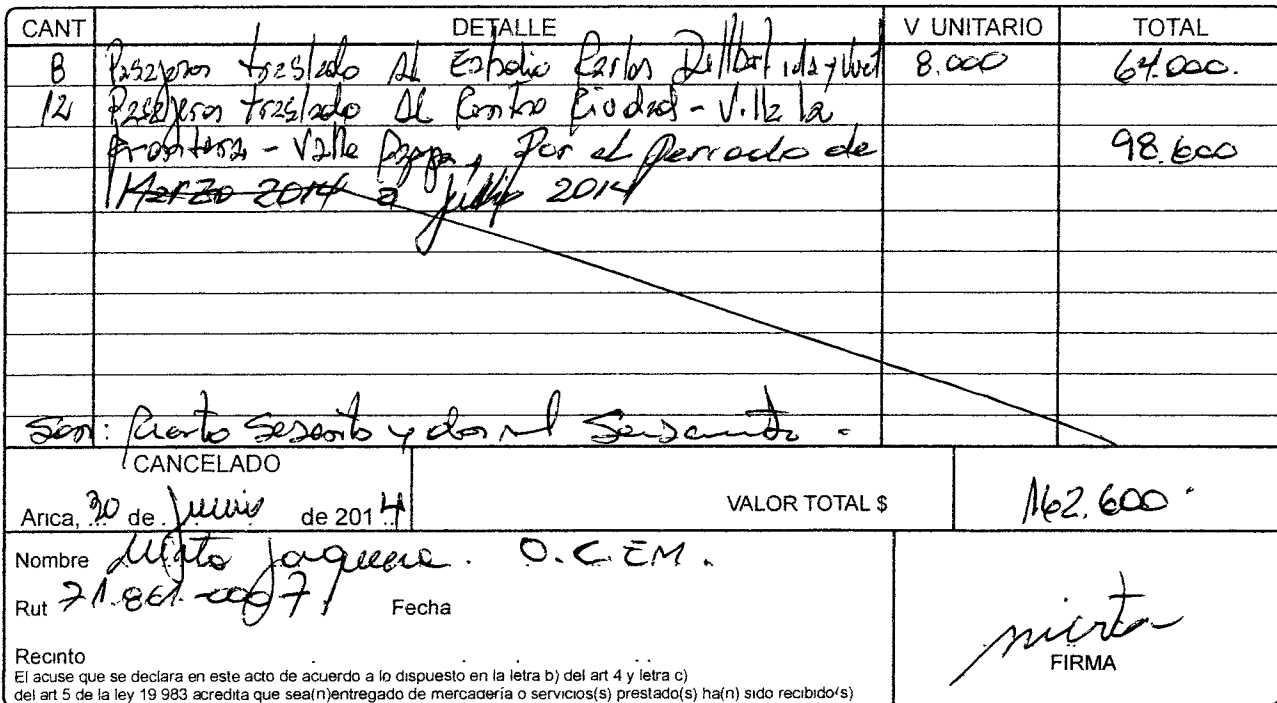 CANT DETALLE V UNITARIO TOTAL
8 Pasajeros traslado al Estadio Carlos Dittborn ida y vuel 8.000 64.000.
12 Pasajeros traslado al Centro Ciudad - Villa la
Frontera - Valle Azapa, Por el periodo de 98.600
Marzo 2014 a 2014
Son: Ciento Sesenta y dos mil Seiscientos.
CANCELADO
Arica, 30 de Junio de 2014 VALOR TOTAL $ 162.600.
Nombre Mirta Jaquera. O.C.EM.
Rut 71.861.000-7 Fecha
mirta
Recinto FIRMA
El acuse que se declara en este acto de acuerdo a lo dispuesto en la letra b) del art 4 y letra c)
del art 5 de la ley 19 983 acredita que sea(n)entregado de mercadería o servicios(s) prestado(s) ha(n) sido recibido(s)